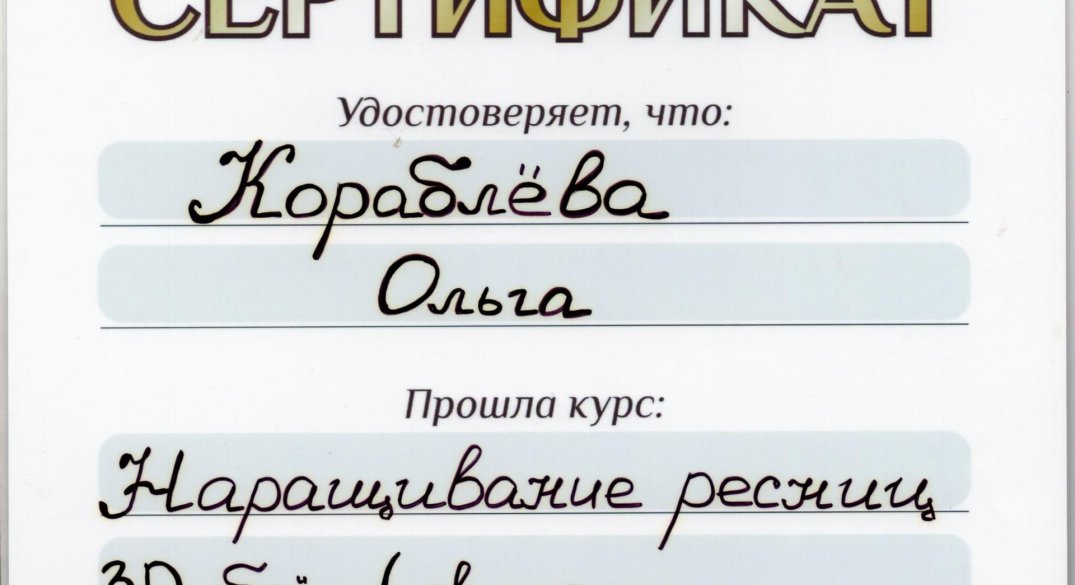 СЕРТИФИКАТ
Удостоверяет, что:
Кораблёва
Ольга
Прошла курс:
Наращивание ресниц
3D